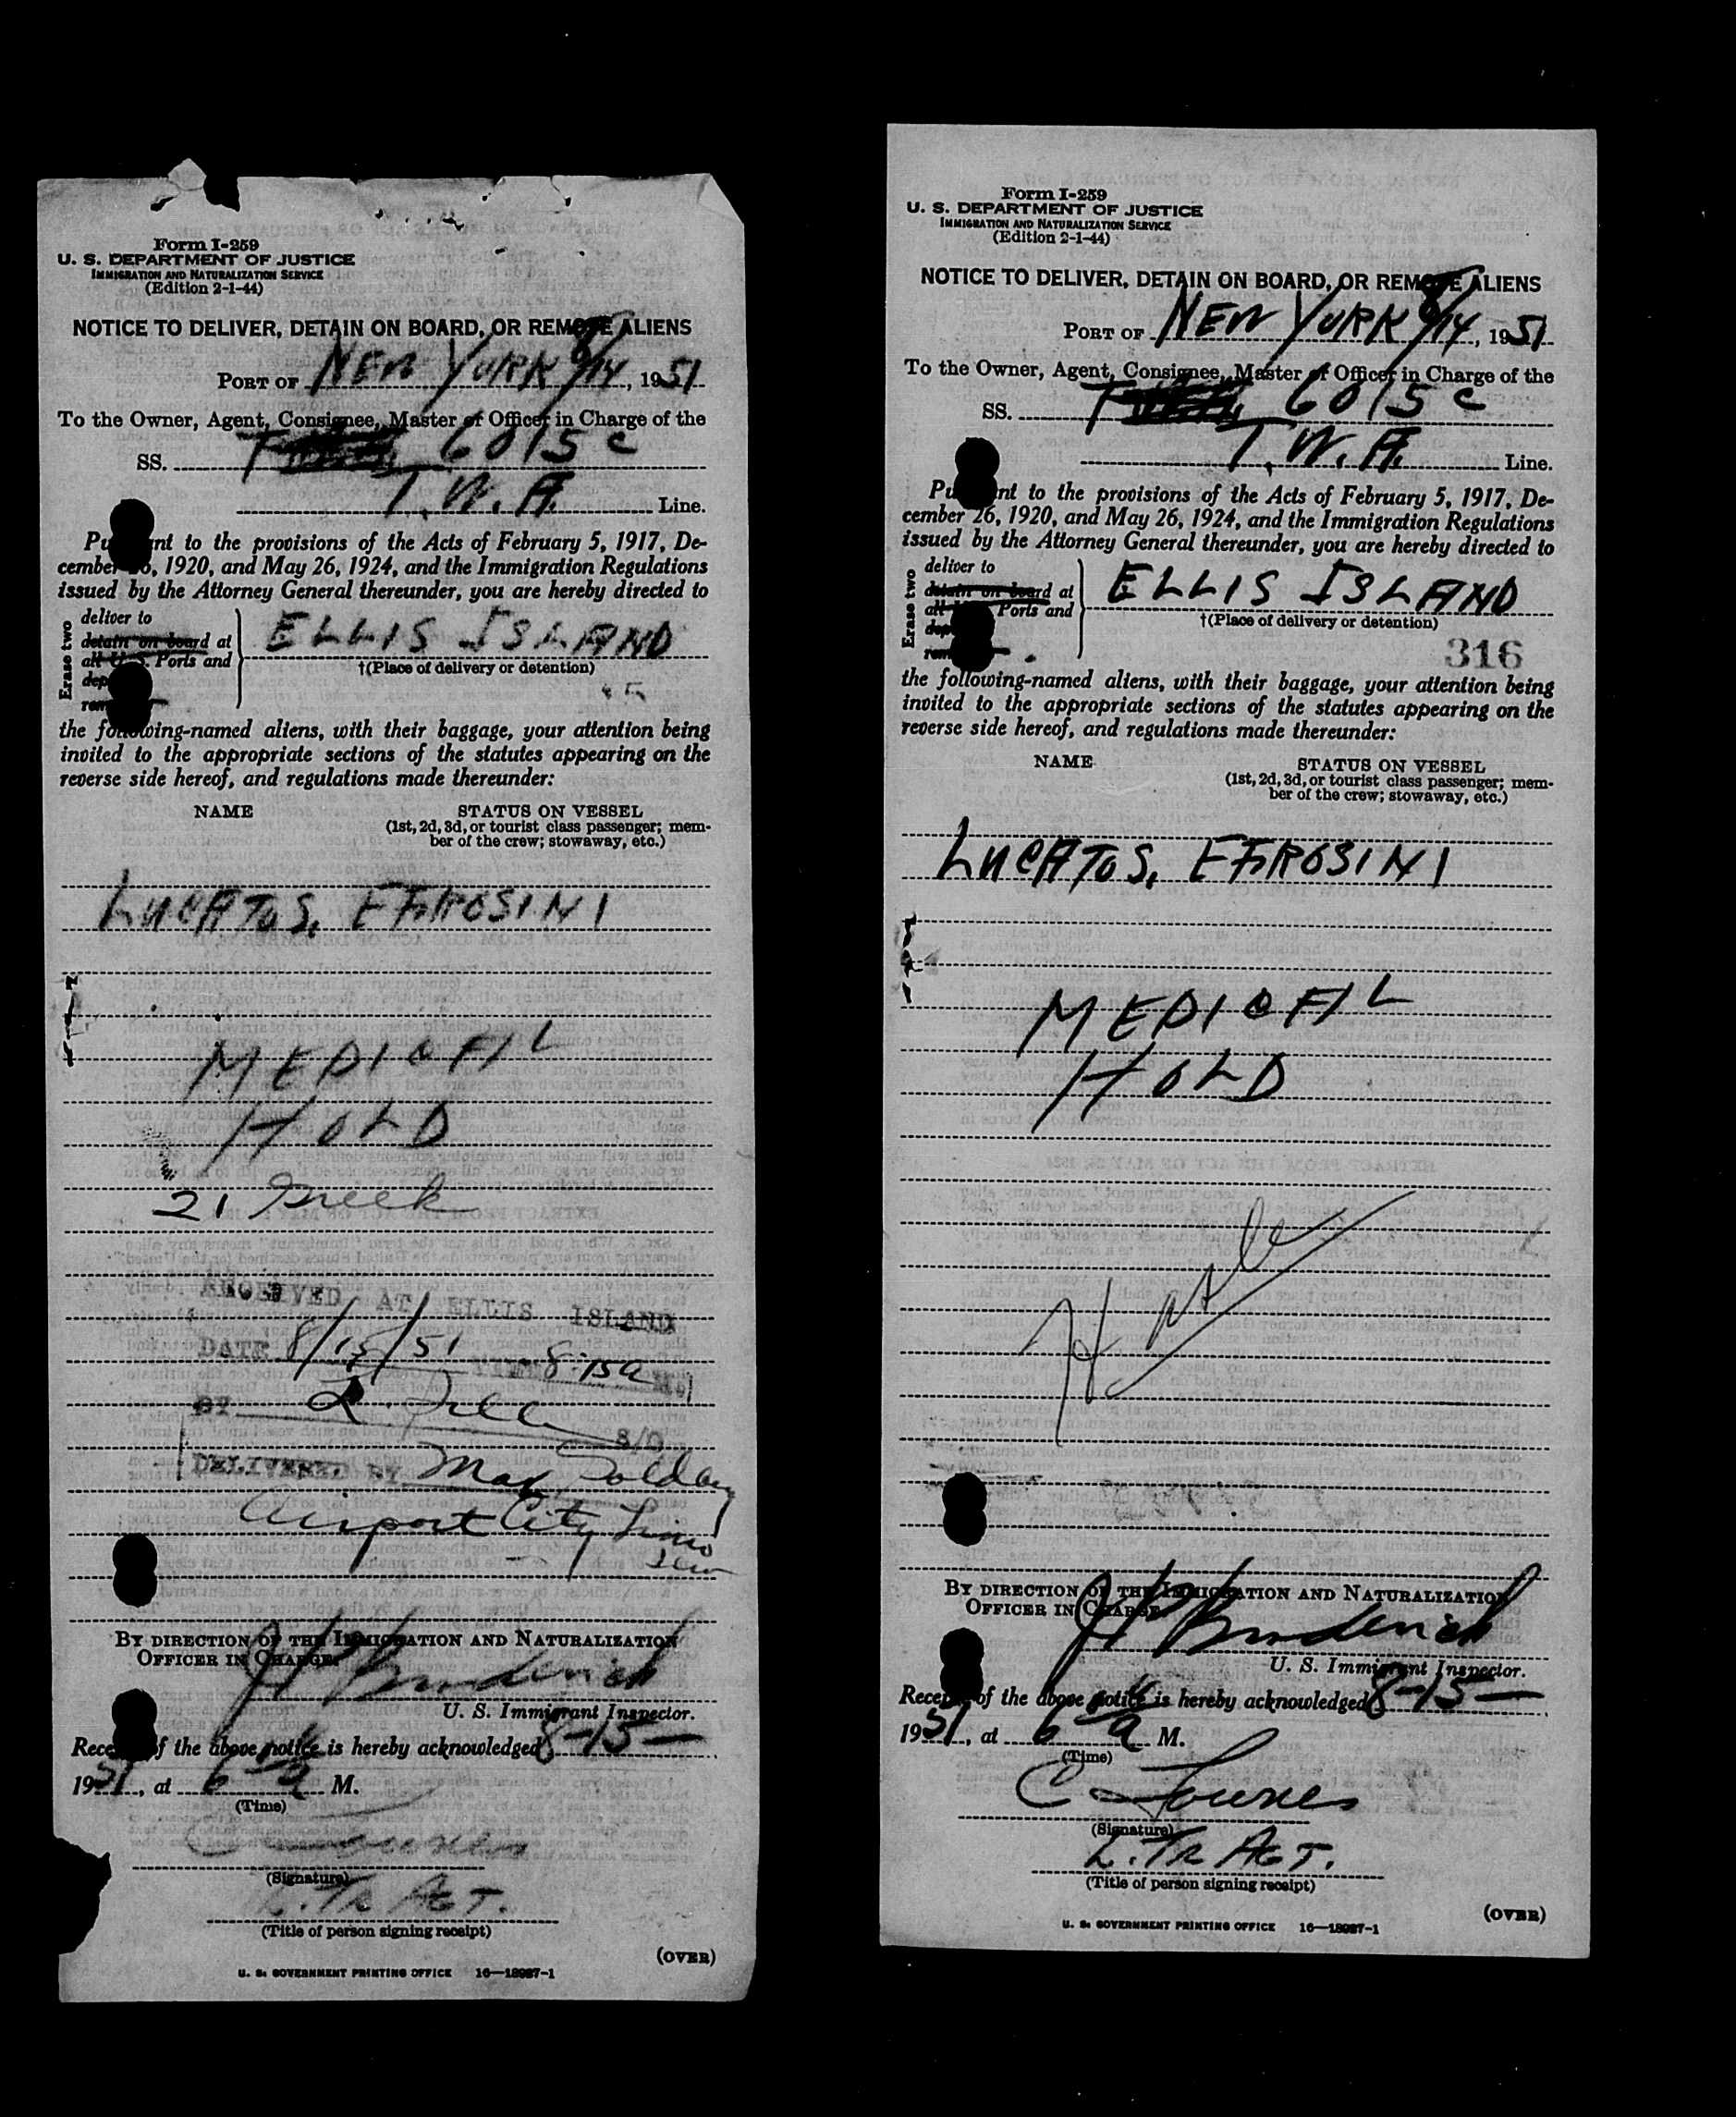 Form I-259
U. S. DEPARTMENT OF JUSTICE
IMMIGRATION AND NATURALIZATION SERVICE
(Edition 2-1-44)
NOTICE TO DELIVER, DETAIN ON BOARD, OR REMOVE ALIENS
PORT OF NEW YORK 8/14, 1951
To the Owner, Agent, Consignee, Master or Officer in Charge of the
SS. 6015 C
T.W.A. Line.
Pursuant to the provisions of the Acts of February 5, 1917, De-
cember 26, 1920, and May 26, 1924, and the Immigration Regulations
issued by the Attorney General thereunder, you are hereby directed to
Erase two
deliver to
detain on board at
all U. S. Ports and
dep
rem
ELLIS ISLAND
†(Place of delivery or detention)
the following-named aliens, with their baggage, your attention being
invited to the appropriate sections of the statutes appearing on the
reverse side hereof, and regulations made thereunder:
NAME STATUS ON VESSEL
(1st, 2d, 3d, or tourist class passenger; mem-
ber of the crew; stowaway, etc.)
LUCATOS, EFROSINI
MEDICAL
HOLD
21 Greek
RECEIVED AT ELLIS ISLAND
DATE 8/15/51 TIME 8:15a M.
BY
DELIVERED BY Max
Airport City Limo
By direction of the Immigration and Naturalization
Officer in Charge.
U. S. Immigrant Inspector.
Receipt of the above notice is hereby acknowledged 8-15-
1951, at 6 a M.
(Time)
(Signature)
L. TR AGT.
(Title of person signing receipt)
(OVER)
U. S. GOVERNMENT PRINTING OFFICE 16—18987-1
Form I-259
U. S. DEPARTMENT OF JUSTICE
IMMIGRATION AND NATURALIZATION SERVICE
(Edition 2-1-44)
NOTICE TO DELIVER, DETAIN ON BOARD, OR REMOVE ALIENS
PORT OF NEW YORK 8/14, 1951
To the Owner, Agent, Consignee, Master or Officer in Charge of the
SS. 6015 C
T.W.A. Line.
Pursuant to the provisions of the Acts of February 5, 1917, De-
cember 26, 1920, and May 26, 1924, and the Immigration Regulations
issued by the Attorney General thereunder, you are hereby directed to
Erase two
deliver to
detain on board at
all Ports and
dep
rem
ELLIS ISLAND
†(Place of delivery or detention)
316
the following-named aliens, with their baggage, your attention being
invited to the appropriate sections of the statutes appearing on the
reverse side hereof, and regulations made thereunder:
NAME STATUS ON VESSEL
(1st, 2d, 3d, or tourist class passenger; mem-
ber of the crew; stowaway, etc.)
LUCATOS, EFROSINI
MEDICAL
HOLD
By direction of the Immigration and Naturalization
Officer in Charge.
U. S. Immigrant Inspector.
Receipt of the above notice is hereby acknowledged 8-15-
1951, at 6 a M.
(Time)
(Signature)
L. TR AGT.
(Title of person signing receipt)
(OVER)
U. S. GOVERNMENT PRINTING OFFICE 16—18987-1